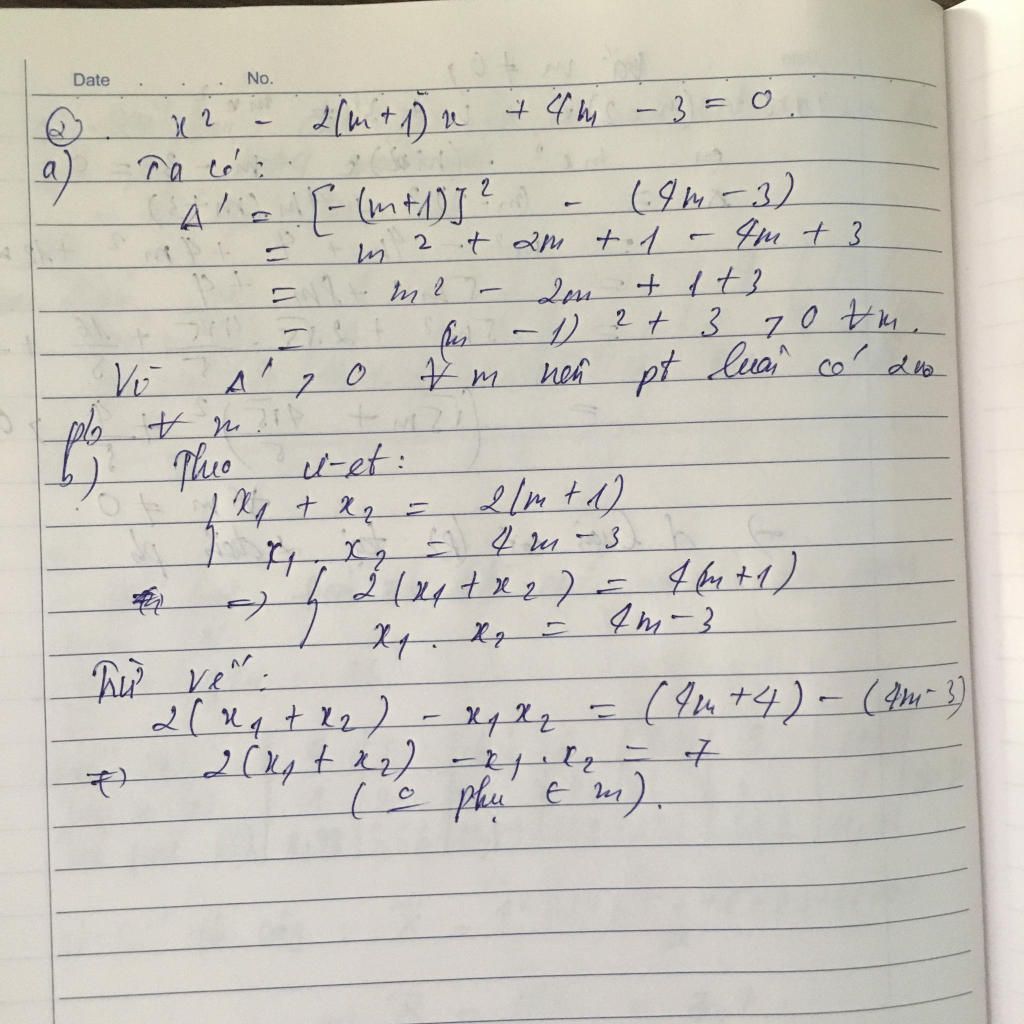 Date No.
②. x² - 2(m+1)x + 4m - 3 = 0.
a) Ta có:
Δ' = [-(m+1)]² - (4m-3)
= m² + 2m + 1 - 4m + 3
= m² - 2m + 1 + 3
= (m - 1)² + 3 > 0 ∀m.
Vì Δ' > 0 ∀ m nên pt luôn có 2 no
pb ∀ m.
b) Theo vi-et:
{ x₁ + x₂ = 2(m+1)
x₁ . x₂ = 4m - 3
=> { 2(x₁ + x₂) = 4(m+1)
x₁ . x₂ = 4m - 3
Trừ vế:
2(x₁ + x₂) - x₁x₂ = (4m+4) - (4m-3)
2(x₁ + x₂) - x₁.x₂ = 7
(phụ ∈ m).